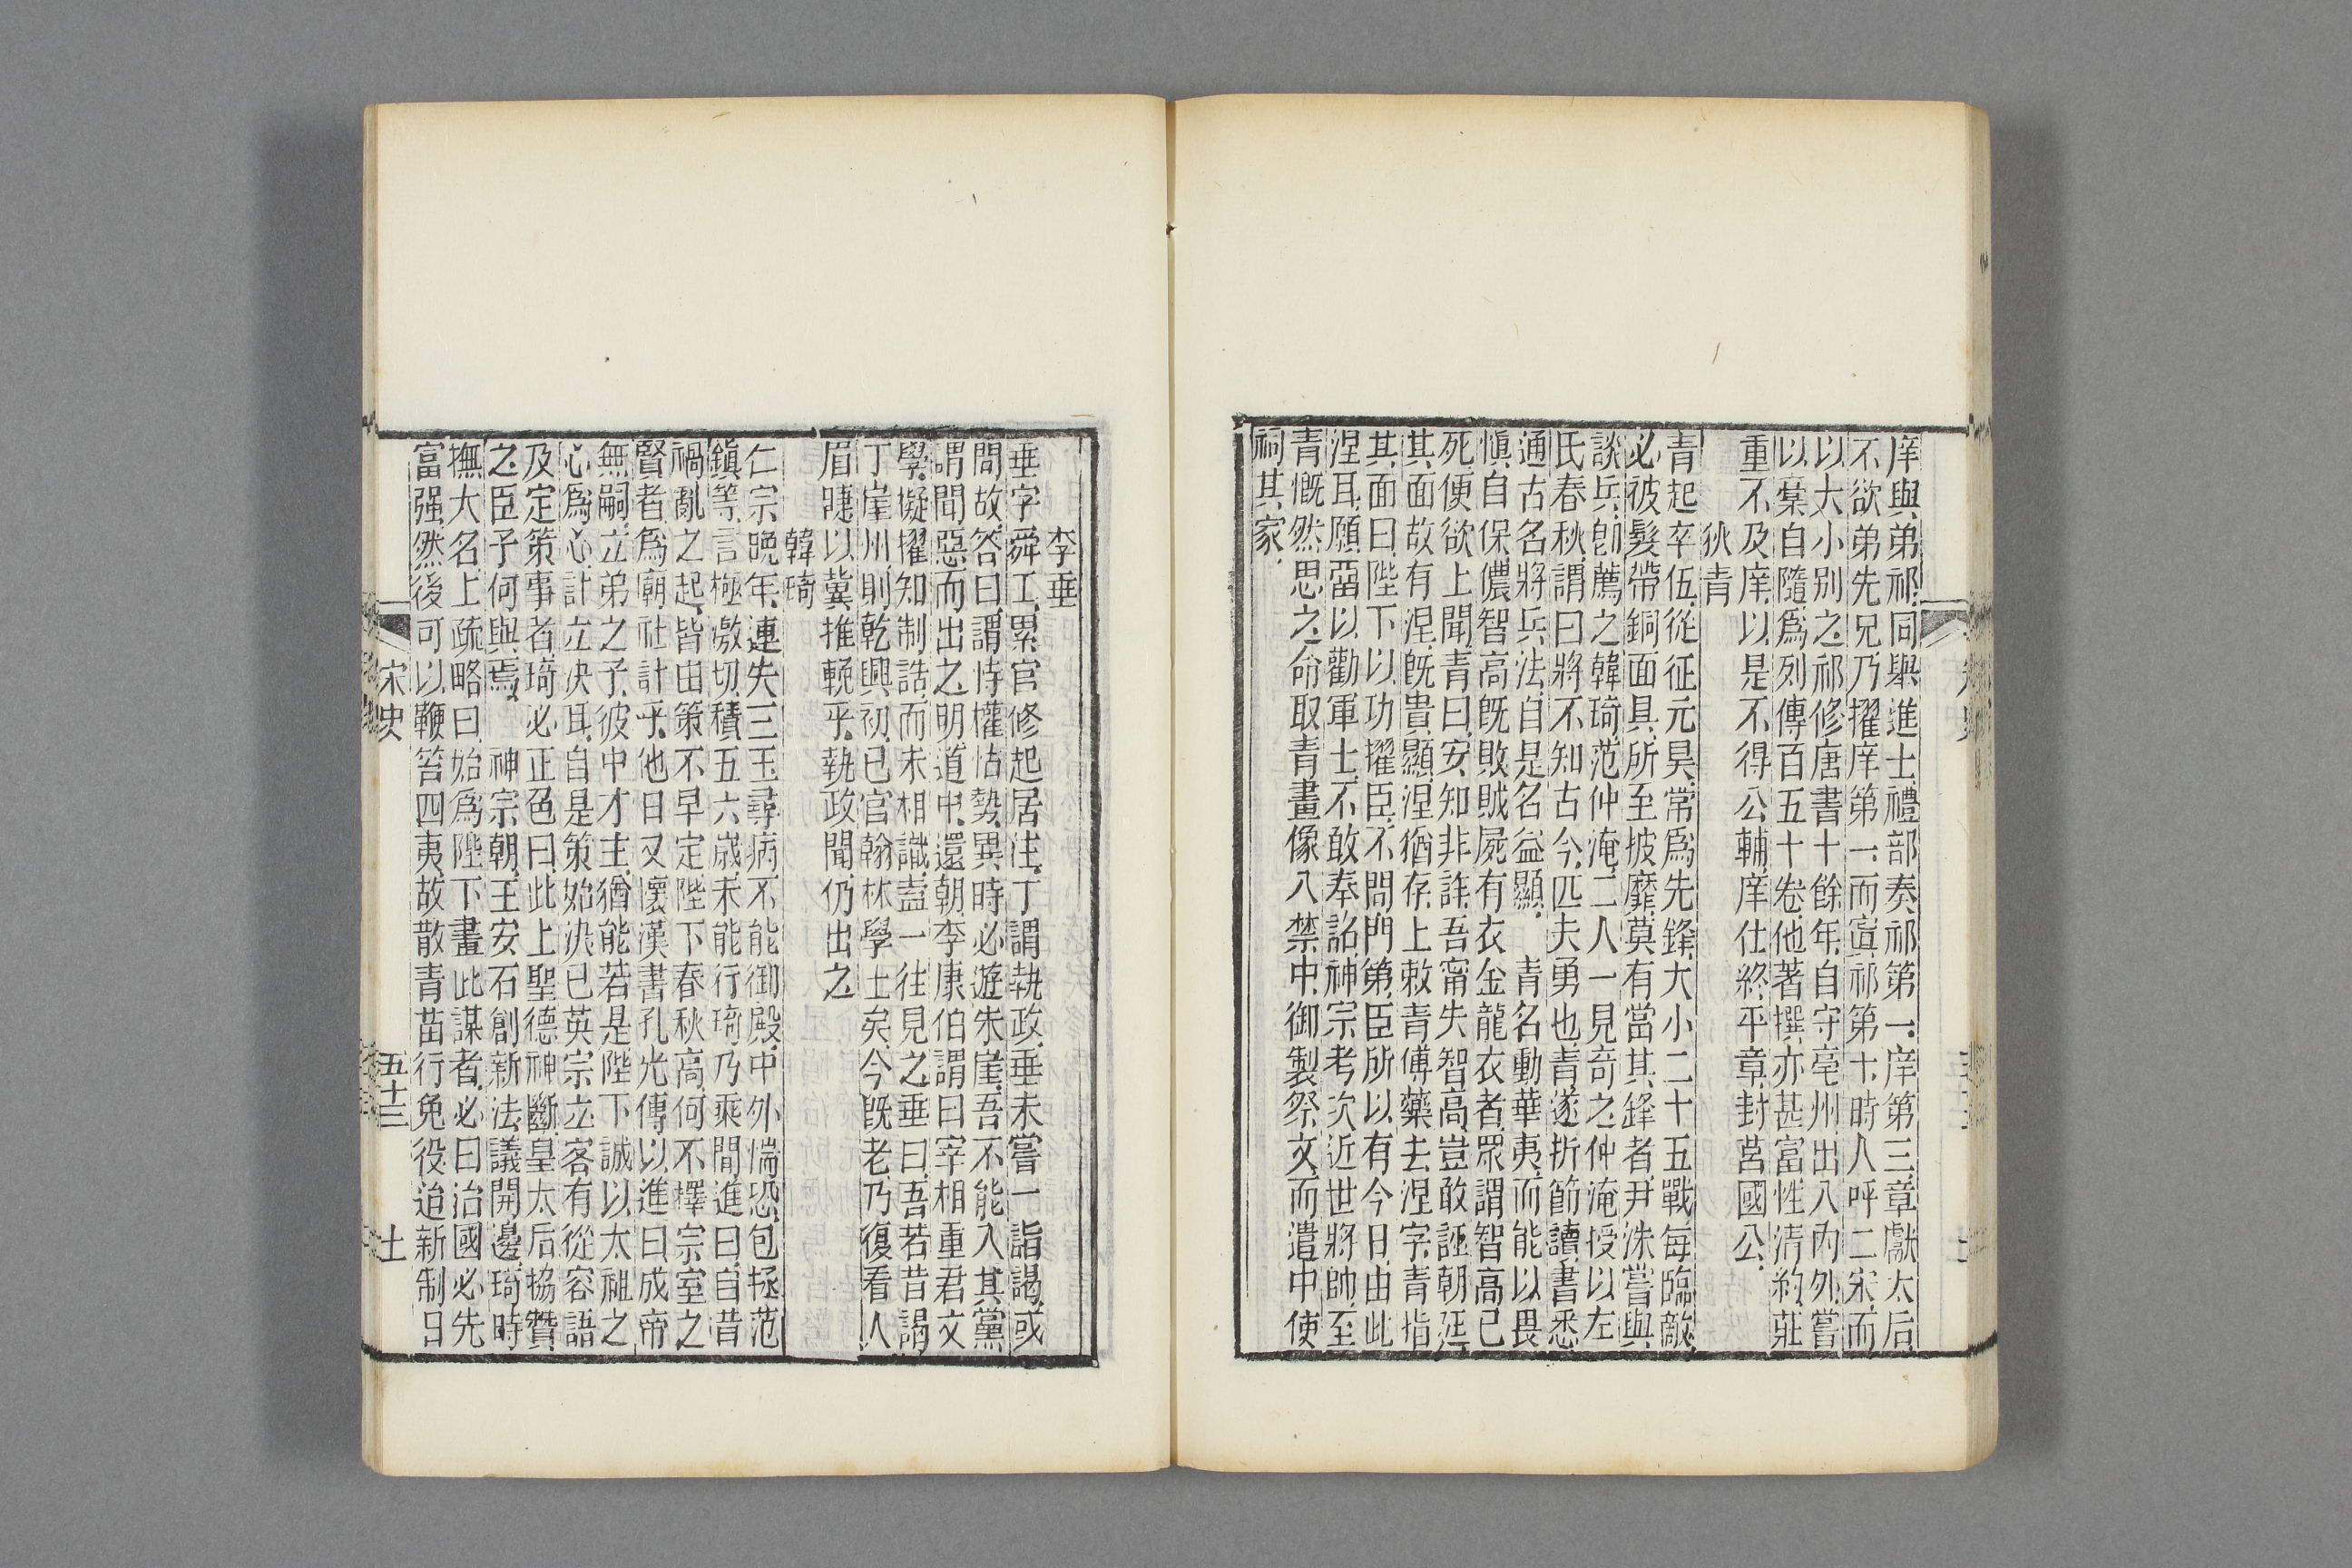 庠與弟祁同舉進士禮部奏祁第一庠第三章獻太后
不欲弟先兄乃擢庠第一而寘祁第十時人呼二宋而
以大小別之祁修唐書十餘年自守亳州出入內外嘗
以藁自隨爲列傳百五十卷他著撰亦甚富性清約莊
重不及庠以是不得公輔庠仕終平章封莒國公
狄青
青起卒伍從征元昊常爲先鋒大小二十五戰每臨敵
必被髮帶銅面具所至披靡莫有當其鋒者尹洙嘗與
談兵卽薦之韓琦范仲淹二人一見奇之仲淹授以左
氏春秋謂曰將不知古今匹夫勇也青遂折節讀書悉
通古名將兵法自是名益顯　青名動華夷而能以畏
慎自保儂智高旣敗賊屍有衣金龍衣者眾謂智高已
死便欲上聞青曰安知非詐吾甯失智高豈敢誣朝廷
其面故有涅旣貴顯涅猶存上敕青傅藥去涅字青指
其面曰陛下以功擢臣不問門第臣所以有今日由此
涅耳願留以勸軍士不敢奉詔神宗考次近世將帥至
青慨然思之命取青畫像入禁中御製祭文而遣中使
祠其家
李垂
垂字舜工累官修起居注丁謂執政垂未嘗一詣謁或
問故答曰謂恃權怙勢異時必遊朱崖吾不能入其黨
謂聞惡而出之明道中還朝李康伯謂曰宰相重君文
學擬擢知制誥而未相識盍一往見之垂曰吾若昔謁
丁崖州則乾興初已官翰林學士矣今旣老乃復看人
眉睫以冀推輓乎執政聞仍出之
韓琦
仁宗晚年連失三王尋病不能御殿中外惴恐包拯范
鎮等言極激切積五六歲未能行琦乃乘間進曰自昔
禍亂之起皆由策不早定陛下春秋高何不擇宗室之
賢者爲廟社計乎他日又懷漢書孔光傳以進曰成帝
無嗣立弟之子彼中才主猶能若是陛下誠以太祖之
心爲心計立決耳自是策始決已英宗立客有從容語
及定策事者琦必正色曰此上聖德神斷皇太后協贊
之臣子何與焉　神宗朝王安石創新法議開邊琦時
撫大名上疏略曰始爲陛下畫此謀者必曰治國必先
富强然後可以鞭笞四夷故散青苗行免役迨新制日
宋史　五十三　土